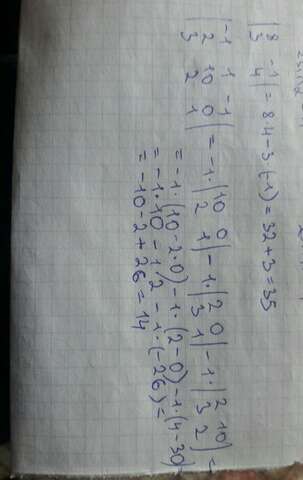 | 8 -1 |
| 3 4 | = 8·4-3·(-1) = 32+3 = 35
| -1 1 -1 |
| 2 10 0 |
| 3 2 1 | = -1·| 10 0 | -1·| 2 0 | -1·| 2 10 | =
| 2 1 | | 3 1 | | 3 2 |
= -1·(10-2·0) -1·(2-0) -1·(4-30)
= -1·10 -1·2 -1·(-26) =
= -10-2+26 = 14